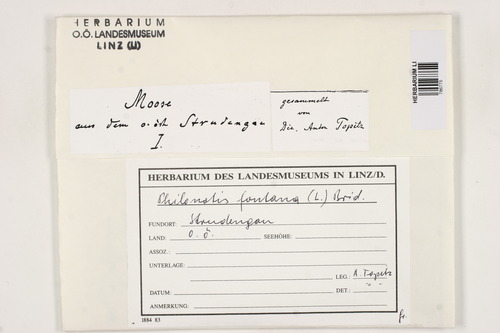 HERBARIUM
O.Ö. LANDESMUSEUM
LINZ (LI)
HERBARIUM LI
Moose
aus dem o.öst. Strudengau
I.
gesammelt
von
Dir. Anton Topitz
HERBARIUM DES LANDESMUSEUMS IN LINZ/D.
Philonotis fontana (L.) Brid.
FUNDORT: Strudengau
LAND: O.Ö. SEEHÖHE:
ASSOZ.:
UNTERLAGE:
LEG.: A. Topitz
DATUM: DET.: " "
ANMERKUNG:
1884 83